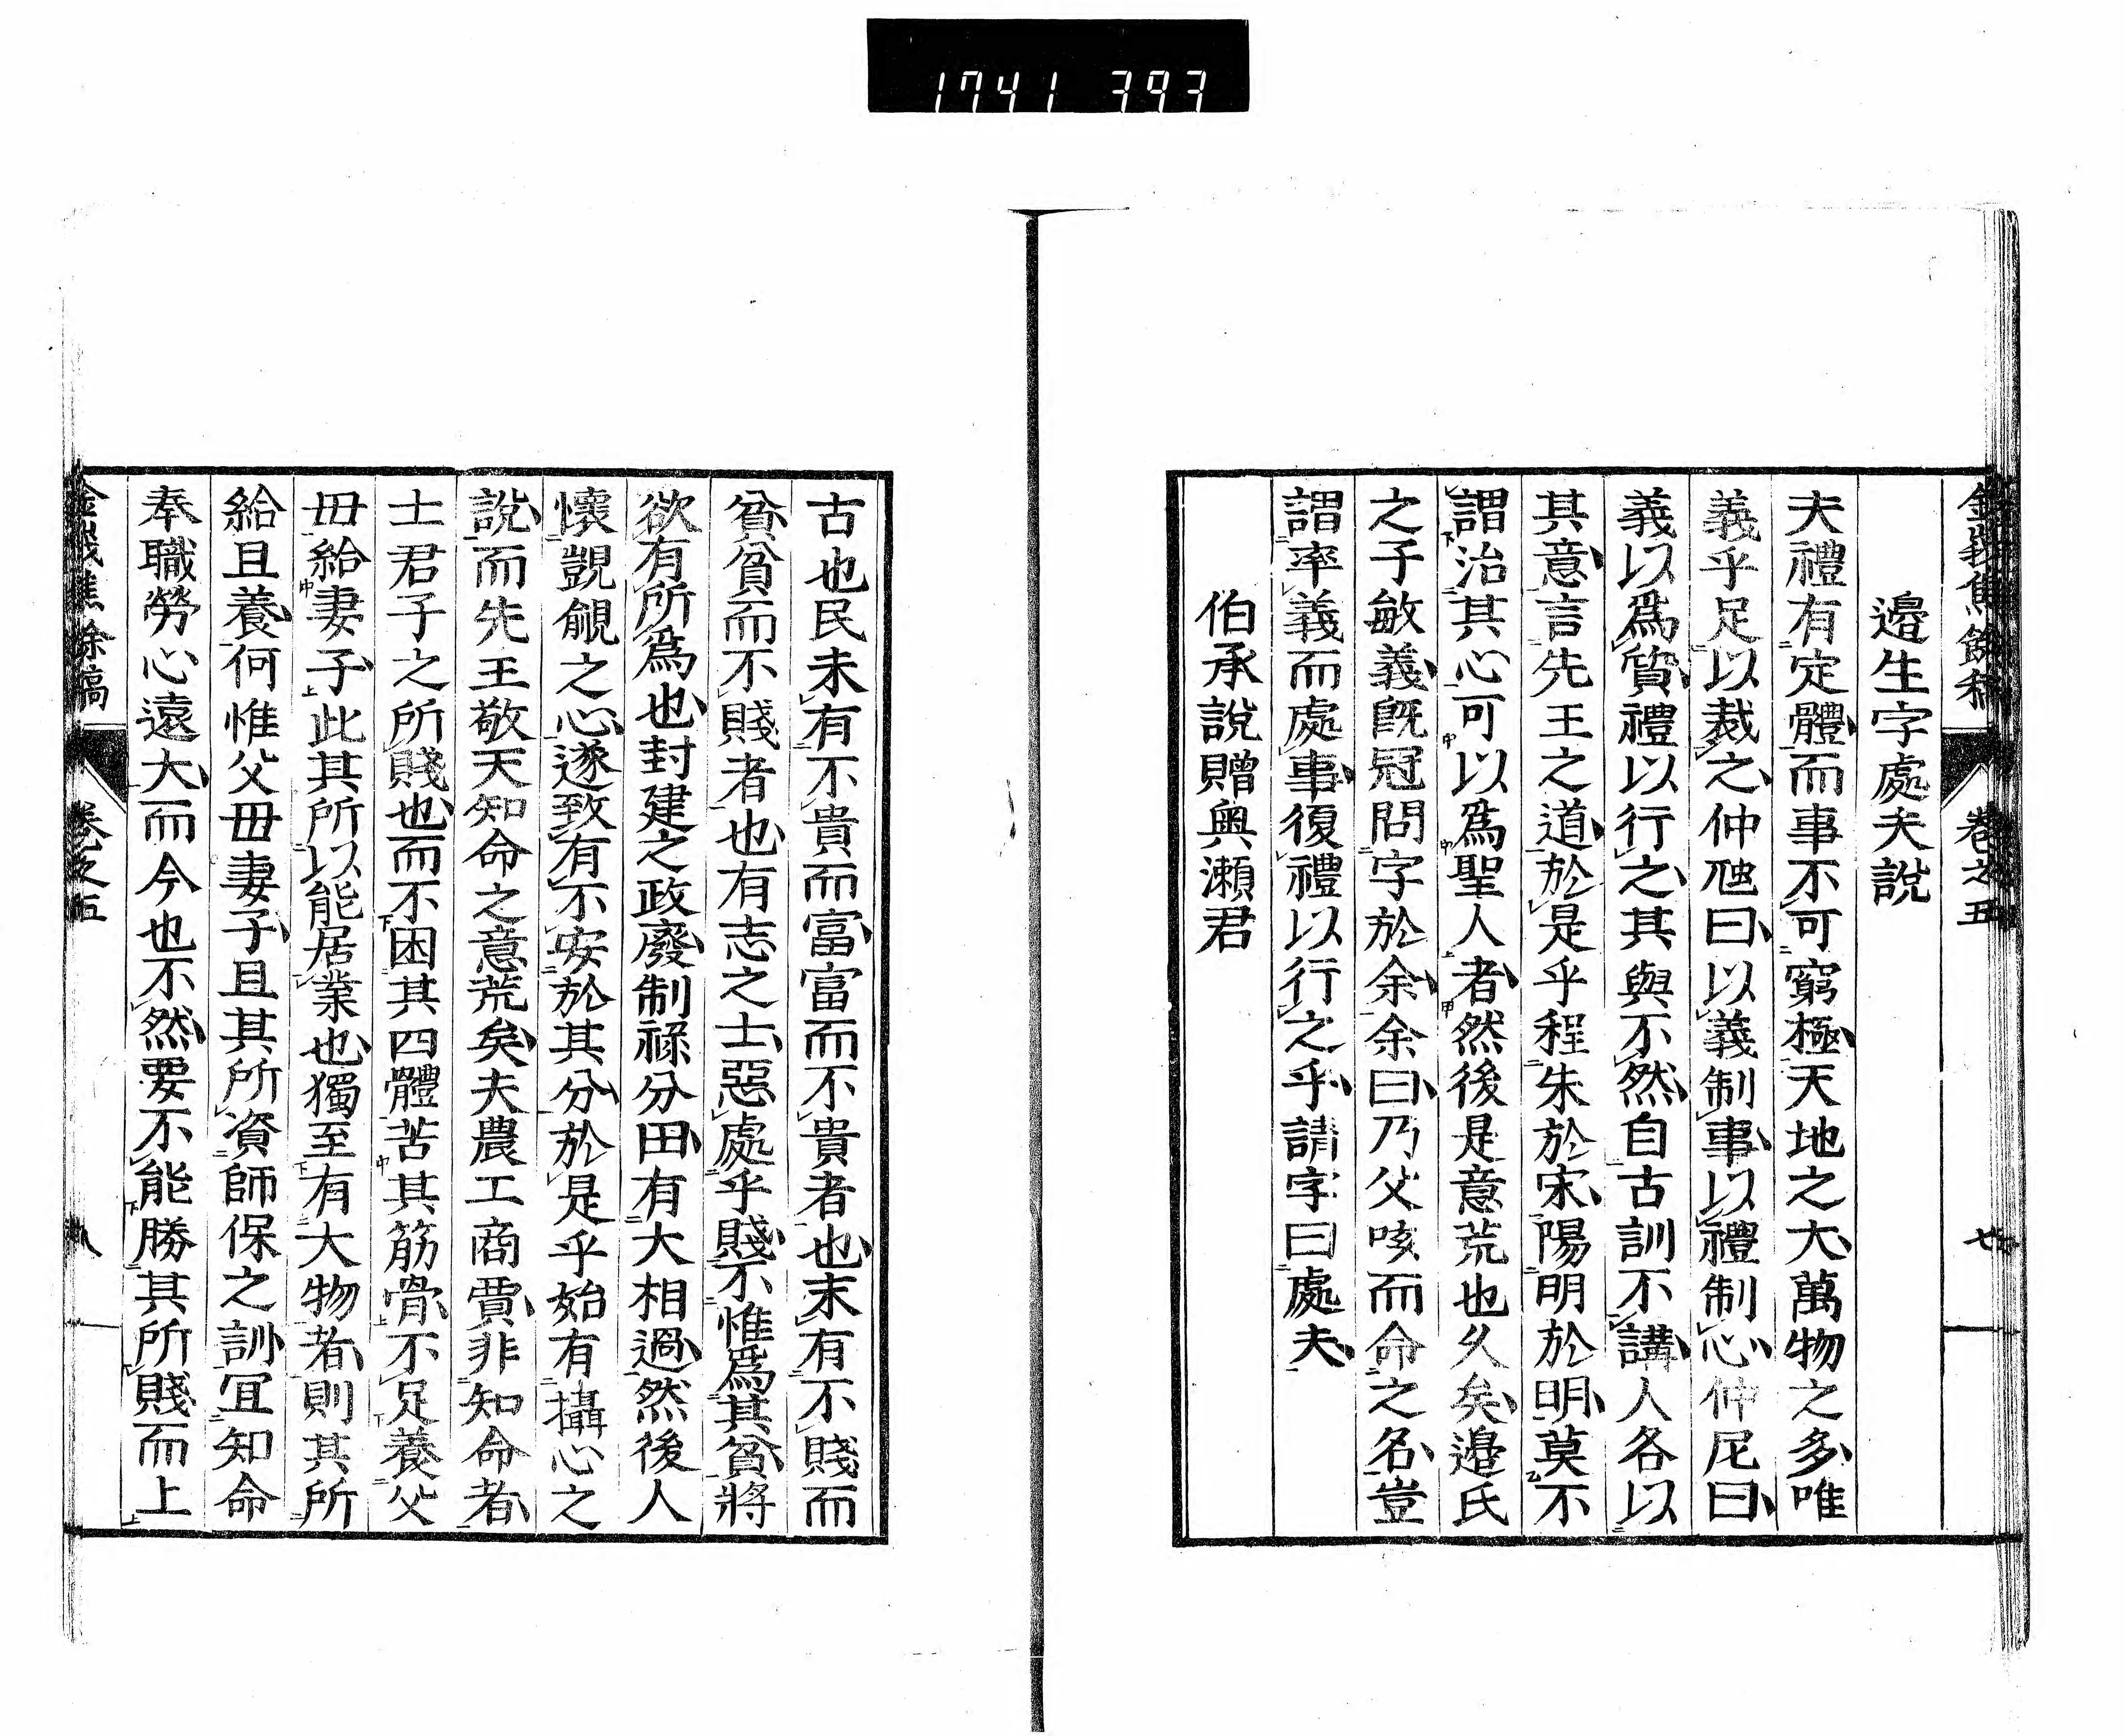 1741 393
邉生字處夫說
夫禮有定體而事不可窮極天地之大萬物之多唯
義乎足以裁之仲虺曰以義制事以禮制心仲尼曰
義以爲質禮以行之其與不然自古訓不講人各以
其意言先王之道於是乎程朱於宋陽明於明莫不
謂治其心可以爲聖人者然後是意荒也久矣邉氏
之子敏義旣冠問字於余余曰乃父咳而命之名豈
謂率義而處事復禮以行之乎請字曰處夫
伯承說贈奧瀨君
古也民未有不貴而富富而不貴者也末有不賤而
貧貧而不賤者也有志之士惡處乎賤不惟爲其貧將
欲有所爲也封建之政廢制祿分田有大相過然後人
懷覬覦之心遂致有不安於其分於是乎始有攝心之
說而先王敬天知命之意荒矣夫農工商賈非知命者
士君子之所賤也而不困其四體苦其筋骨不足養父
毋給妻子此其所以能居業也獨至有大物者則其所
給且養何惟父毋妻子且其所資師保之訓宜知命
奉職勞心遠大而今也不然要不能勝其所賤而上
卷之五